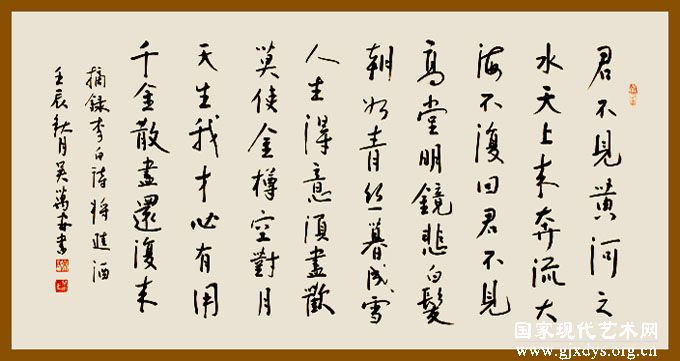 君不見黄河之
水天上来奔流大
海不復回君不見
高堂明鏡悲白髮
朝如青絲暮成雪
人生得意須盡歡
莫使金樽空對月
天生我才必有用
千金散盡還復来
摘錄李白詩將進酒
壬辰秋月吴萬書
国家现代艺术网
www.gjxdys.org.cn